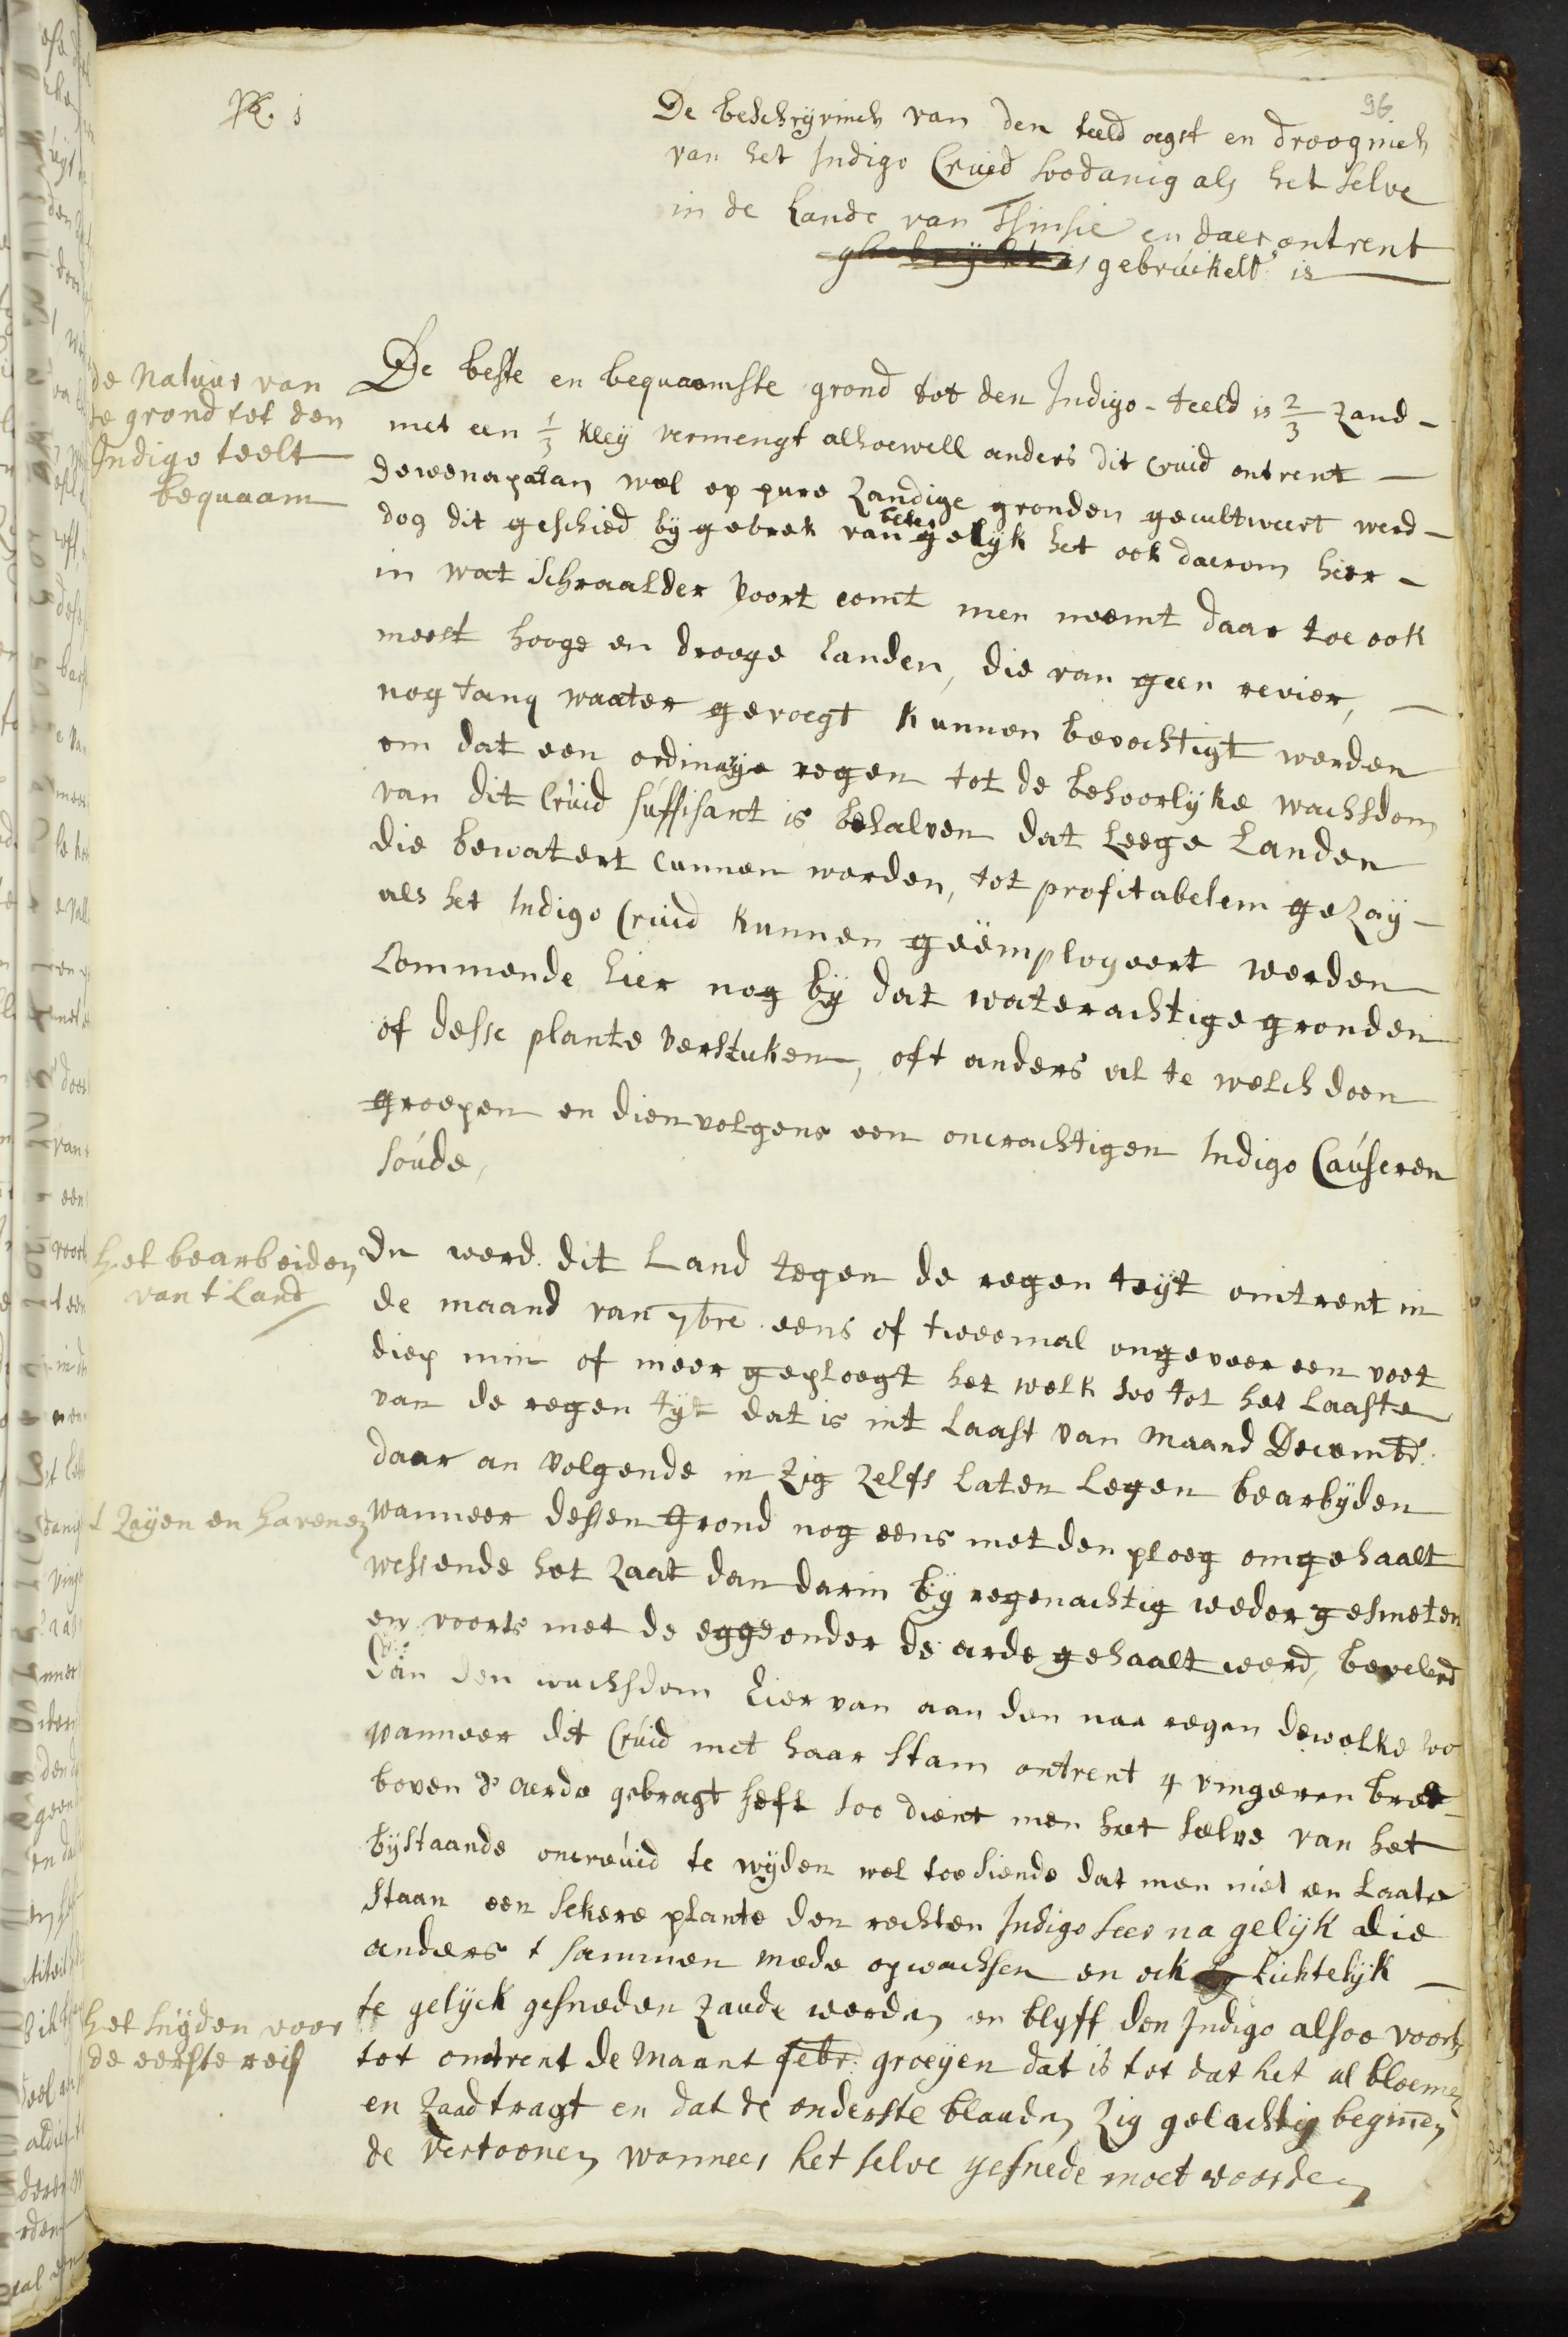 96
De beschryvinch van den teeld oegst en drooginch
van het Indigo Cruid soodanig als het selve
in de Lande van Tsinsie en daer ontrent
gebruikelt is
de Natuur van
de grond tot den
Indigo teelt
bequaam
De beste en bequaamste grond tot den Indigo-teeld is 2/3 zand-
met een 1/3 kleÿ vermengt alhoewell anders dit cruid ontrent
dewenapatan wel op pure zandige gronden gecultiveert werd-
dog dit geschied bÿ gebrek van beter gelÿk het ook daerom hier-
in wat schraalder voort comt men neemt daar toe ook
meest hooge en drooge landen, die van geen revier,
nog tanq waater gevoegt kunnen bevochtigt werden
om dat een ordinarye regen tot de behoorlÿke wachsdom
van dit Cruid suffisant is behalven dat Leege Landen
die bewatert cunnen worden, tot profitabelem gezaÿ-
als het Indigo Cruid kunnen geëmployeert werden
Commende hier nog bÿ dat waterachtige gronden
of desse plante verstuken, oft anders al te welch doen
groepen en dienvolgens een oncrachtigen Indigo Causeren
soude,
het bearbeiden
van t Land
Du werd dit Land tegen de regen tÿt omtrent in
de maand van 7bre eens of tweemal ongeveer een voet
diep min of meer geploegt het welk soo tot het laaste
van de regen tÿt dat is int laast van maand Decembr.
daar an volgende in zig zelfs laten legen bearbÿden
t Zaÿen en havenen
wanneer dessen grond nog eens met den ploeg omgehaalt
wessende het zaat dan darin bÿ regenachtig weder gesmeten
en voorts met de egge onder de arde gehaalt werd, bevelend
dan den wachsdom hier van aan den naa regen dewelke soo
wanneer dit Cruid met haar stam ontrent 4 vingeren bret
boven d' aerde gebragt heft soo dient men het selve van het
bÿstaande oncruid te wÿden wel toe siende dat men niet en laate
staan een sekere plante den rechten Indigo seer na gelÿk die
anders t sammen mede opwachsen en ock lichtelÿk
te gelÿck gesneden zaude werden en blyff den Indigo alsoo voorts
het snÿden voor
de eerste reis
tot omtrent de Maant febr. groeÿen dat is tot dat het al bloemen
en zaad tragt en dat de onderste blauden zig gelachtig beginnen
de vertoonen wanneer het selve gesnede moet woorden